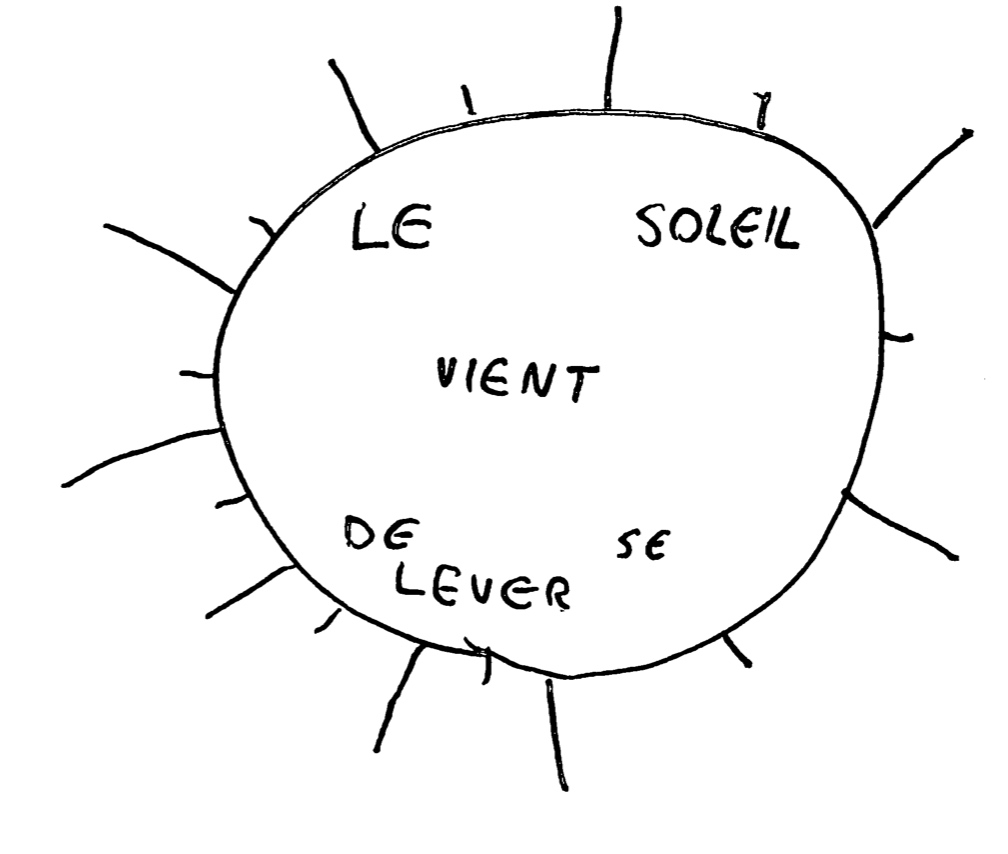 LE SOLEIL
VIENT
DE SE
LEVER